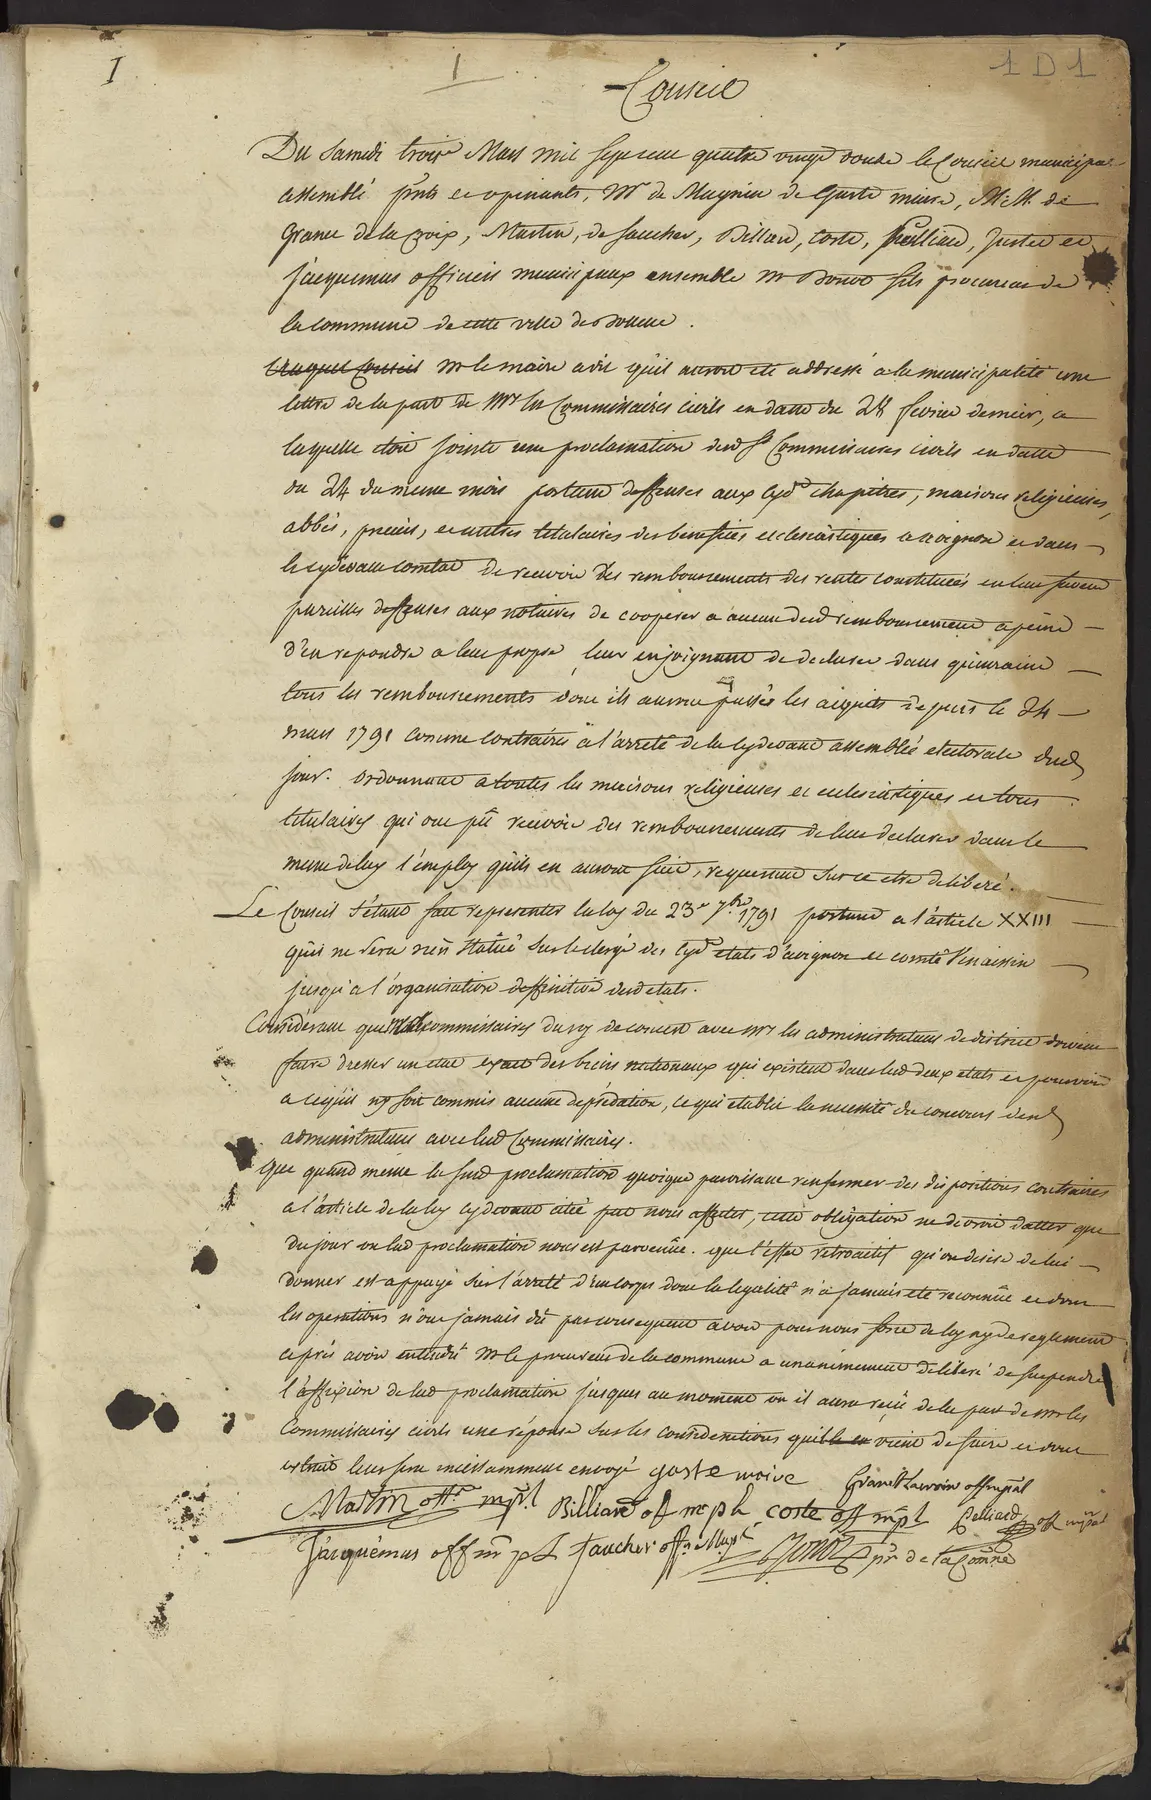 I
1
1 D 1
Conseil
Du Samedi troise Mars mil sept cent quatre vingt douze le Conseil municipal
assemblé pnts et opinants, Mr de Magnin de Gaste maire, M.M. de
Granet de la croix, Martin, de faucher, Billard, Coste, pelliard, Juster et
Jacquemus officiers municipaux ensemble Mr Bonot fils procureur de
la commune de cette ville de Bollene.
Auquel Conseil Mr le maire a dit qu'il auroit été addressé a la municipalité une
lettre de la part de Mrs les Commissaires civils en datte du 28 fevrier dernier, a
laquelle étoit jointe une proclamation desd Srs Commissaires civils en datte
du 24 du meme mois portant deffenses aux cyd.t chapitres, maisons religieuses,
abbés, prieurs, et autres titulaires des benefices ecclesiastiques a avignon et dans
le cydevant comtat de recevoir des remboursements des rentes constituées en leur faveur
pareilles deffenses aux notaires de cooperer a aucun desd remboursement a peine
d'en repondre a leur propre, leur enjoignant de declarer dans quinzaine
tous les remboursements dont ils auront passés les acquits depuis le 24
mars 1791 comme contraires a l'arreté de la cydevant assemblée electorale dud
jour. ordonnant a toutes les maisons religieuses et ecclesiastiques et tous
titulaires qui ont pû recevoir des remboursements de leur declarer dans le
meme delay l'employ qu'ils en auront fait, requerant sur ce etre deliberé.
Le Conseil s'étant fait representer la loy du 23e 7bre 1791 portant a l'article XXIII
qu'il ne sera rien statué sur le clergé des cyd.t etats d'avignon et comté Venaissin
jusqu'a l'organisation deffinitive desd etats.
Considerant que Mrs les commissaires du roy de concert avec Mrs les administrateurs de district doivent
faire dresser un etat exact des biens nationaux qui existent dans lesd deux etats et pourvoir
a ce qu'il n'y soit commis aucune déprédation, ce qui etablit la necessité du concours desd
administrateurs avec lesd Commissaires.
Que quand même la susd proclamation quoique paroissant renfermer des dispositions contraires
a l'article de la loy cydevant cité put nous affecter, cette obligation ne devroit datter que
du jour ou lad proclamation nous est parvenüe. que l'effet retroactif qu'on desire de lui
donner est appuyé sur l'arreté d'un corps dont la legalité n'a jamais été reconnüe et dont
les operations n'ont jamais dû par consequent avoir pour nous force de loy ny de reglement
après avoir entendu Mr le procureur de la commune a unanimement deliberé de suspendre
l'affixion de lad proclamation jusques au moment ou il aura reçu de la part de Mrs les
Commissaires civils une réponse sur les considerations qu'il vient de faire et dont
extrait leur sera incessamment envoyé gaste maire Granet Lacroix off mpal
Martin offr. mpl. Billiard of mpl coste off mpl Pelliard off mpal
Jacquémus off mpl faucher off. Mupl Bonot pr de la Comne